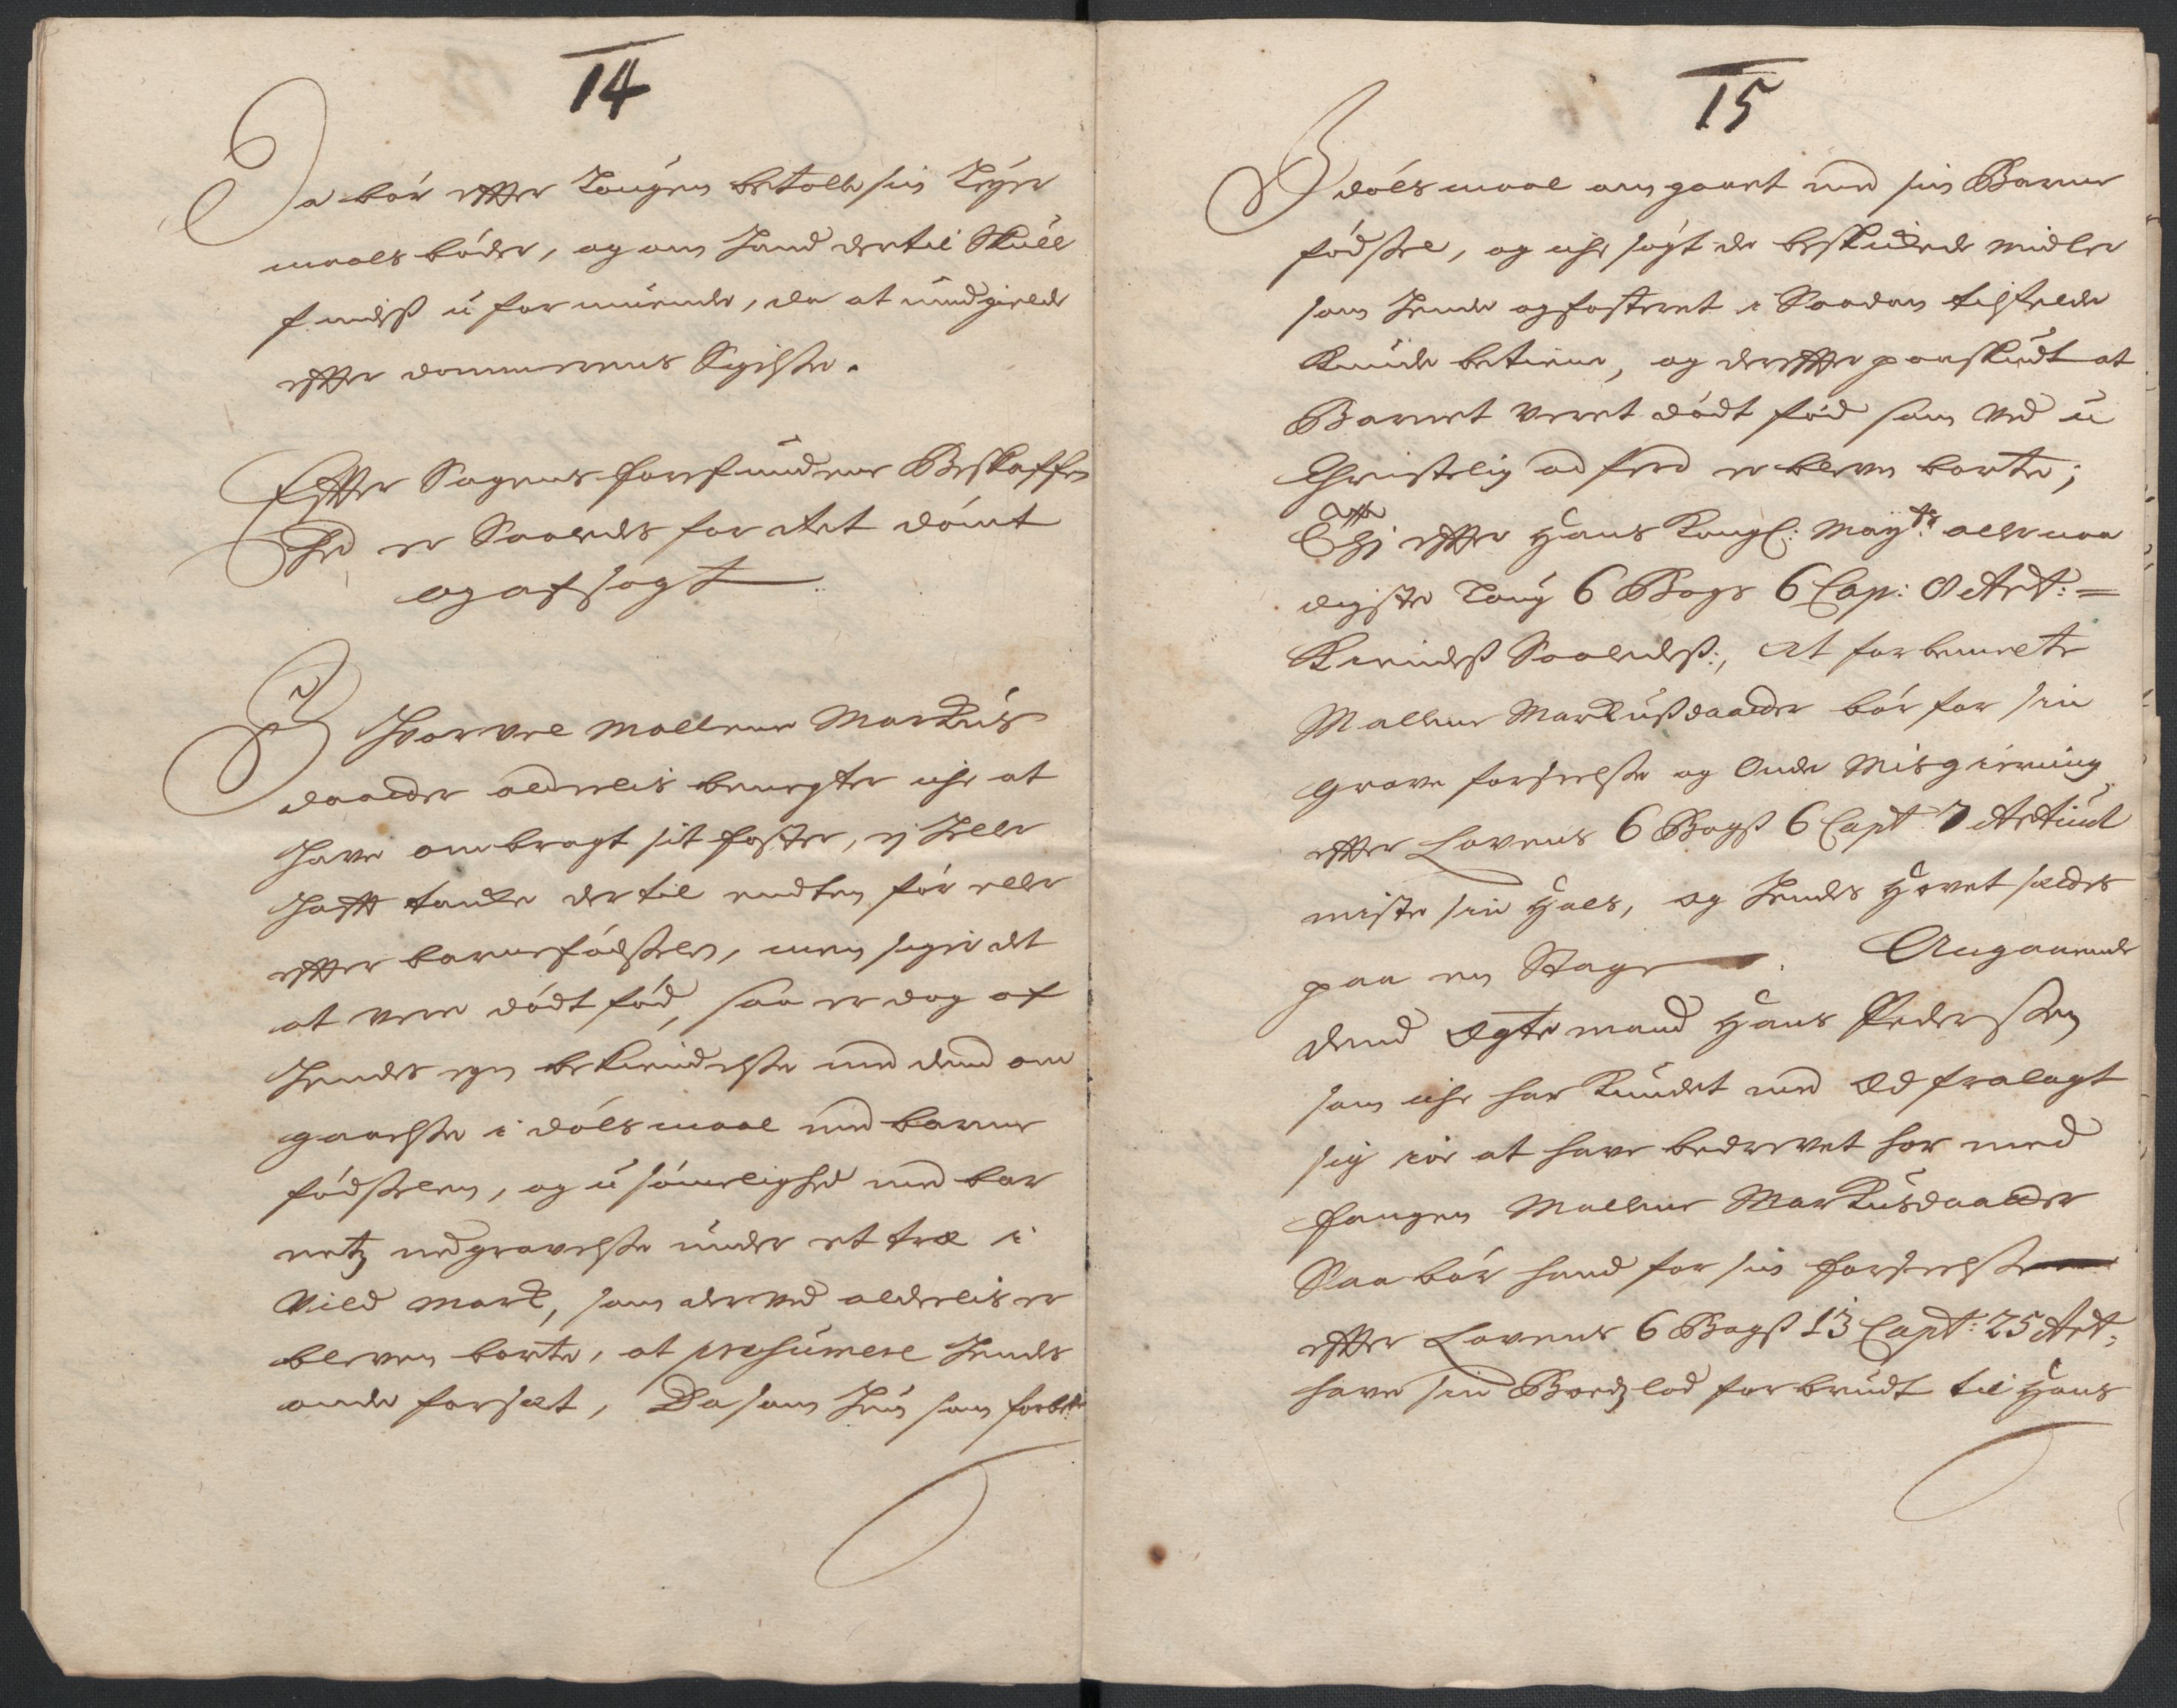 14
Da bør effter Lougen betalle sin Leyer
maals bøder, og om hand dertil Skull
findiß u formuende, da at undgielde
effter dommerens Sigelse.
Effter Sagens forefundene Beskaffen
hed er Saaledes for Ret dømt
og afsagt
I hvorvel Mallene Markus
daatter alderlis benegter iche at
have ombragt sit foster, ej heller
hafft tanke dertil endten før eller
effter barnefødselen, men siger det
at vere dødt fød, saa er dog af
hendes egen bekiendelse med dend om
gaaelse i dølsmaal med barne
fødselen, og usømelighed med bar
netz nedgravelse under et træ i
Vild mark, som derved alderlis er
bleven borte, at præsumere hendes
onde forsæt, Da som hun som forbete
15
I dølsmaal omgaaet med sin Barne
fødsel, og iche søgt de beskichede midler
som hende og fosteret i Saadan tilfelde
kunde betiene, og dereffter paaskudt at
Barnet veret dødt fød som ved u
Christelig adferd er bleven borte;
Thj effter Hans Kongl: May:ts aller naa
digste Loug 6 Bogs 6 Cap: 8 Art: =
Kiendeß Saaledeß:, At forbenevnte
Mallene Markußdaatter bør for sin
grove forseelse og Onde Misgierning
effter Lovens 6 Bogß 6 Capt 7 Articul
miste sin Hals, og hendes Hovet settes
paa en Stage. Angaaende
dend Egte mand Hans Pedersen
som iche har kundet med Ed fralagt
sig io at have bedrevet hor med
fangen Mallene Markusdaatter
Saa bør hand for sin forseelse
effter Lovens 6 Bogß 13 Capt: 25 Art:
have sin Boedzlod forbrudt til Hans